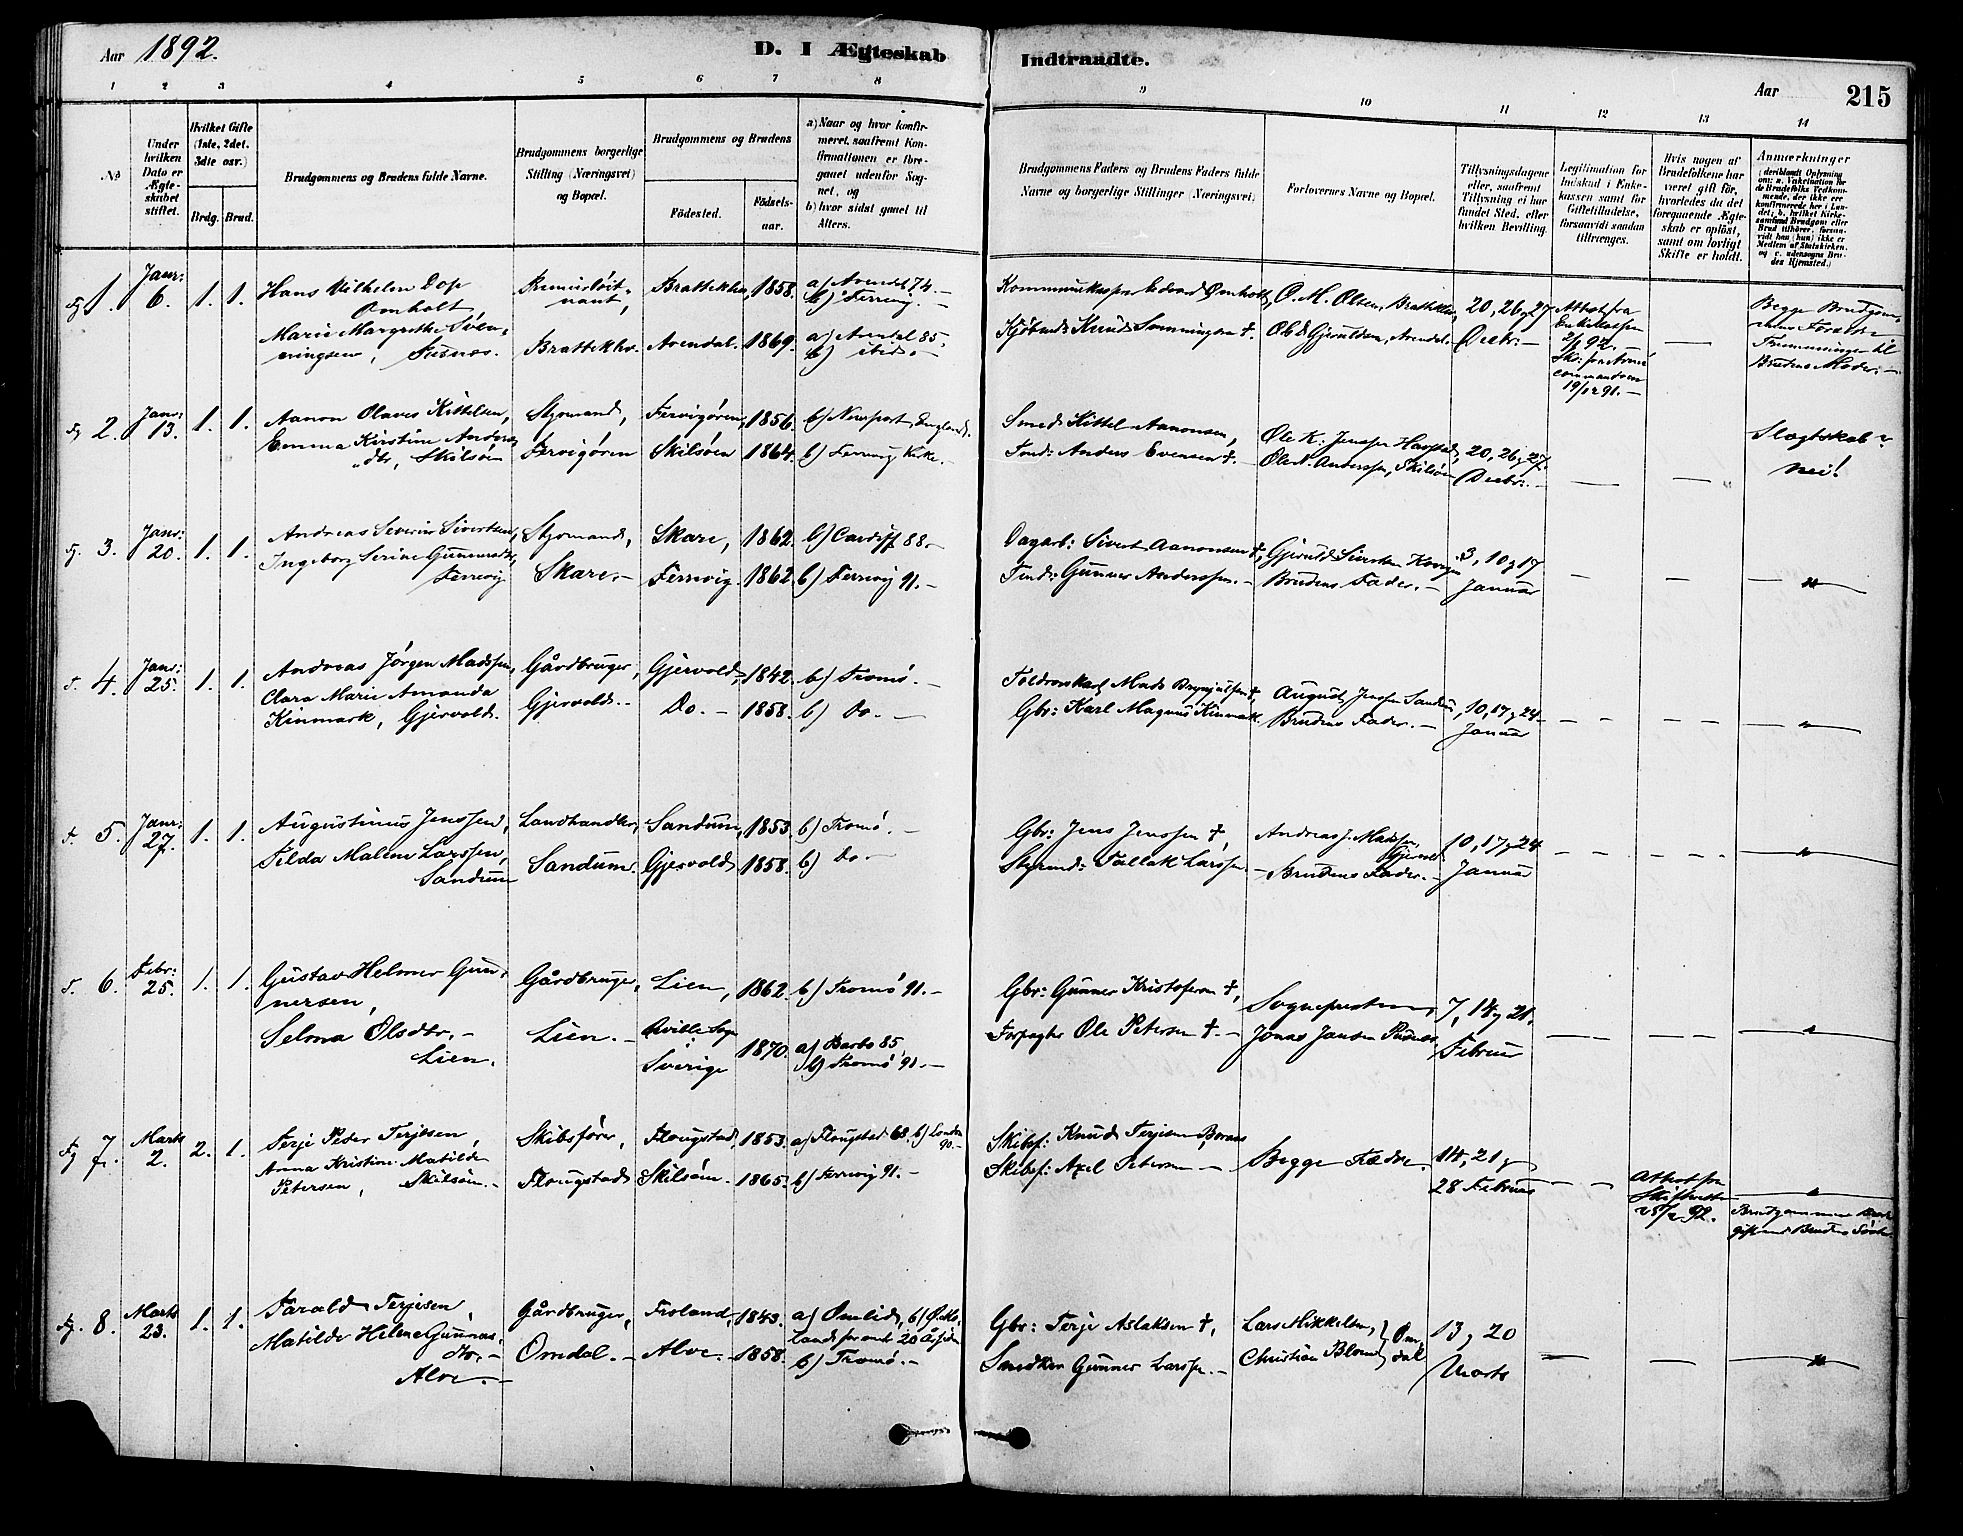 Aar 1892.
D. I Ægteskab
Indtraadte.
Aar
215
1 2 3 4 5 6 7 8
9 10 11 12 13 14
No
Under hvilken Dato er Ægteskabet stiftet.
Hvilket Gifte (1ste, 2det, 3die osv.)
Brdg. Brud.
Brudgommens og Brudens fulde Navne.
Brudgommens borgerlige Stilling (Næringsvei) og Bopæl.
Brudgommens og Brudens
Födested.
Födsels-aar.
a) Naar og hvor konfirmeret, saafremt Konfirmationen er foregaaet udenfor Sognet, og
b) hvor sidst gaaet til Alters.
Brudgommens Faders og Brudens Faders fulde Navne og borgerlige Stillinger (Næringsvei)
Forlovernes Navne og Bopæl.
Tillysningsdagene eller, saafremt Tillysning ei har fundet Sted, efter hvilken Bevilling.
Legitimation for Indskud i Enkekassen samt for Giftetilladelse, forsaavidt saadan tiltrænges.
Hvis nogen af Brudefolkene har været gift før, hvorledes da det foregaaende Ægteskab er oplöst, samt om lovligt Skifte er holdt.
Anmærkninger
1. Janr: 6. 1. 1.
Hans Vilhelm Dop Omholt
Marie Margrethe Svenningsen,
Brattekl.
Arendal. 1858. 1869.
a) Arendal 74.
b) Ferrvig.
a) Arendal 85.
b) ibid.
Knud Svenningsen †.
O. M. Olsen,
Arendal.
20, 26, 27 Decbr:
Attest fra Enkekassen 2/1 92.
19/12 91.
Begge
Brudens Moder.
2. Janr: 13. 1. 1.
Aanon Olaves Kittelsen,
Emma Kirstine Andersdtr, Skilsöen
Styrmand,
Fervigören
Fervigören, 1856.
Skilsöen 1864.
b) Newport England.
b) Ferrvig Kirke.
Smed Kittel Aanonsen,
Tmd: Anders Evensen †.
Ole K: Jenssen
Ole N. Anderssen, Skilsöen
20, 26, 27. Decbr:
Slægtskab?
nei!
3. Janr: 20. 1. 1.
Andreas Severin Sivertsen,
Ingeborg Serine Gunnersdtr, Ferrvig
Styrmand,
Skare.
Skare, 1862.
Ferrvig. 1862.
b) Cardiff 88.
b) Ferrvig 91.
Dagarb: Sivert Aanonsen †,
Tmd: Gunner Anderssen.
Gjeruld Sivertsen
Brudens Fader.
3, 10, 17 Januar
4. Janr: 25. 1. 1.
Andreas Jørgen Madssen,
Clara Marie Amanda
Kinmark, Gjervold.
Gårdbruger,
Gjervold.
Gjervold, 1842.
Do. 1858.
b) Tromö.
b) Do.
Mads Brynjulfsen †,
Gbr: Karl Magnus Kinmark
August Jenssen Sandum,
Brudens Fader.
10, 17, 24 Januar
5. Janr: 27. 1. 1.
Augustinus Jenssen,
Tilda Malene Larssen,
Sandum
Landhandler,
Sandum.
Sandum, 1853.
Gjervold 1858.
b) Tromö.
b) Do
Gbr: Jens Jenssen †,
Styrmd: Tallak Larssen.
Andreas J. Madssen, Gjervold
Brudens Fader.
10, 17, 24 Januar
6. Febr: 25. 1. 1.
Gustav Helmer Gunnersen,
Selma Olsdtr,
Lien.
Gårdbruger,
Lien.
Lien, 1862.
Sverige 1870.
b) Tromö 91.
a) Barbo 85.
b) Tromö 91.
Gbr: Gunner Kristofersen †,
Forpagter Ole Petersen †.
Sognepresten,
Jonas Jansen
7, 14, 21. Februar
7. Marts 2. 2. 1.
Terje Peder Terjesen,
Anna Kristine Matilde
Petersen, Skilsöen.
Skibsfører,
Flougstad
Flougstad, 1853.
Skilsöen. 1865.
a) Flougstad 68. b) London 90.
b) Ferrvig 91.
Skibsf: Knud Terjesen,
Skibsf: Axel Petersen
Begge Fædre.
14, 21, 28 Februar
Attest fra Skifteretten 25/2 92.
8. Marts 23. 1. 1.
Tarald Terjesen,
Matilde Helene Gunnersdtr.
Alve.
Gårdbruger,
Omdal.
Froland, 1843.
Alve. 1858.
a) Omlid,
b) Tromö.
Gbr: Terje Aslaksen †,
Gunner Larssen.
Lars Mikkelsen,
Christian Blom
Omdal
13, 20 Marts